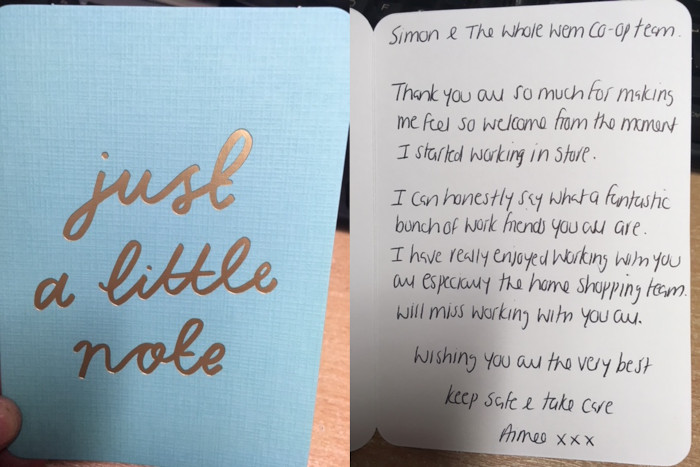 just
a little
note
Simon & The whole Wem Co-op team.
Thank you all so much for making
me feel so welcome from the moment
I started working in store.
I can honestly say what a fantastic
bunch of work friends you all are.
I have really enjoyed working with you
all especially the home shopping team.
will miss working with you all.
Wishing you all the very best
keep safe & take care
Aimee xxx